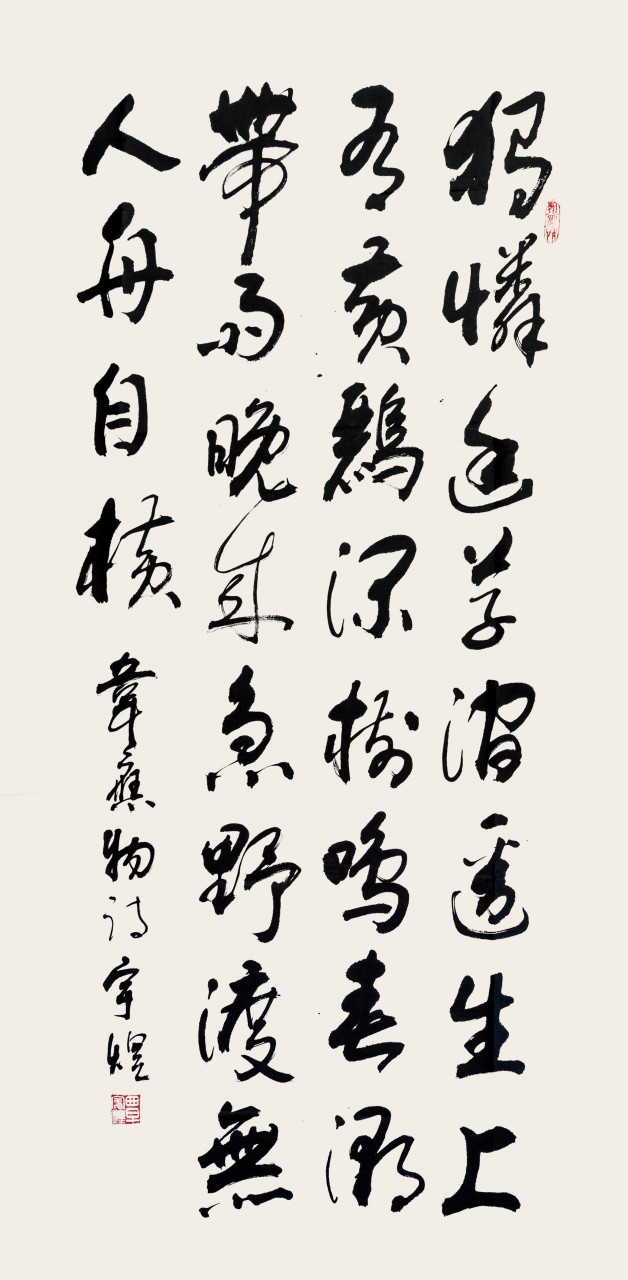 獨憐幽草澗邊生上
有黃鸝深樹鳴春潮
帶雨晚來急野渡無
人舟自橫
韋應物詩宇煜